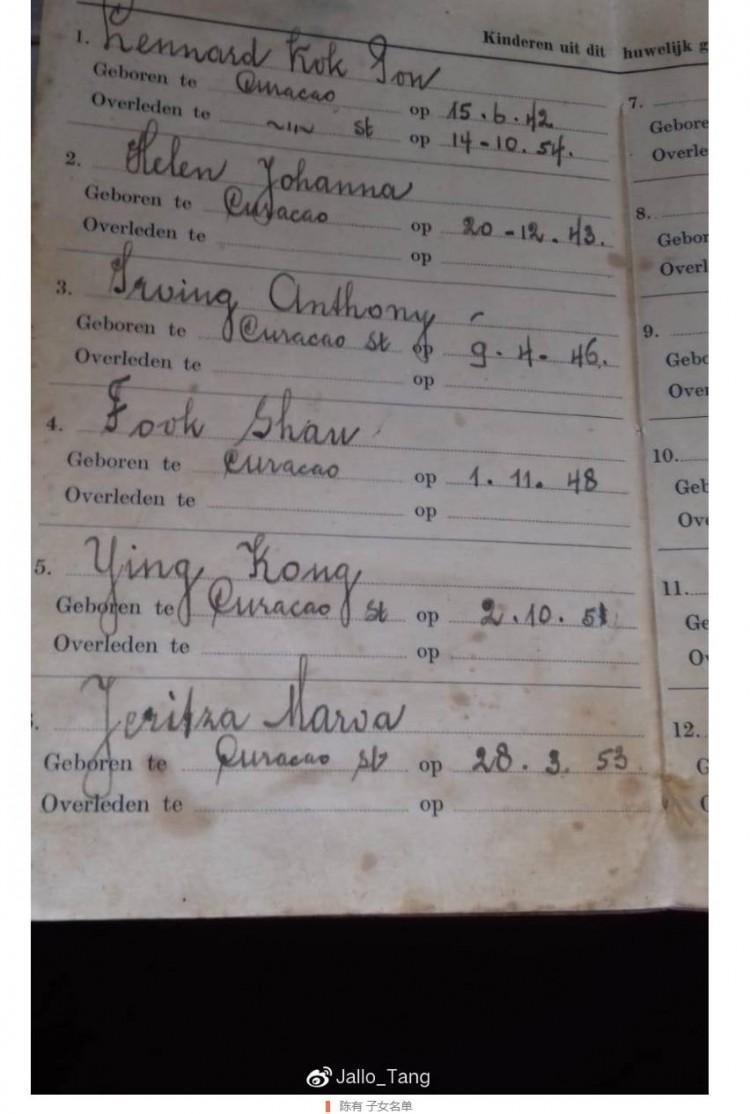 Kinderen uit dit huwelijk g
1. Lennard Kok Sow
Geboren te Curacao op 15.6.42
Overleden te ~"~ st op 14-10.54.
2. Helen Johanna
Geboren te Curacao op 20-12.43.
Overleden te op
3. Irving Anthony
Geboren te Curacao st op 9.4.46.
Overleden te op
4. Fook Shau
Geboren te Curacao op 1.11.48
Overleden te op
5. Ying Kong
Geboren te Curacao st op 2.10.51
Overleden te op
Jeritza Marva
Geboren te Curacao st op 28.3.53
Overleden te op
7.
Gebore
Overle
8.
Gebor
Overl
9.
Gebo
Over
10.
Geb
Ove
11.
Ge
O
12.
G
Jallo_Tang
陈有 子女名单